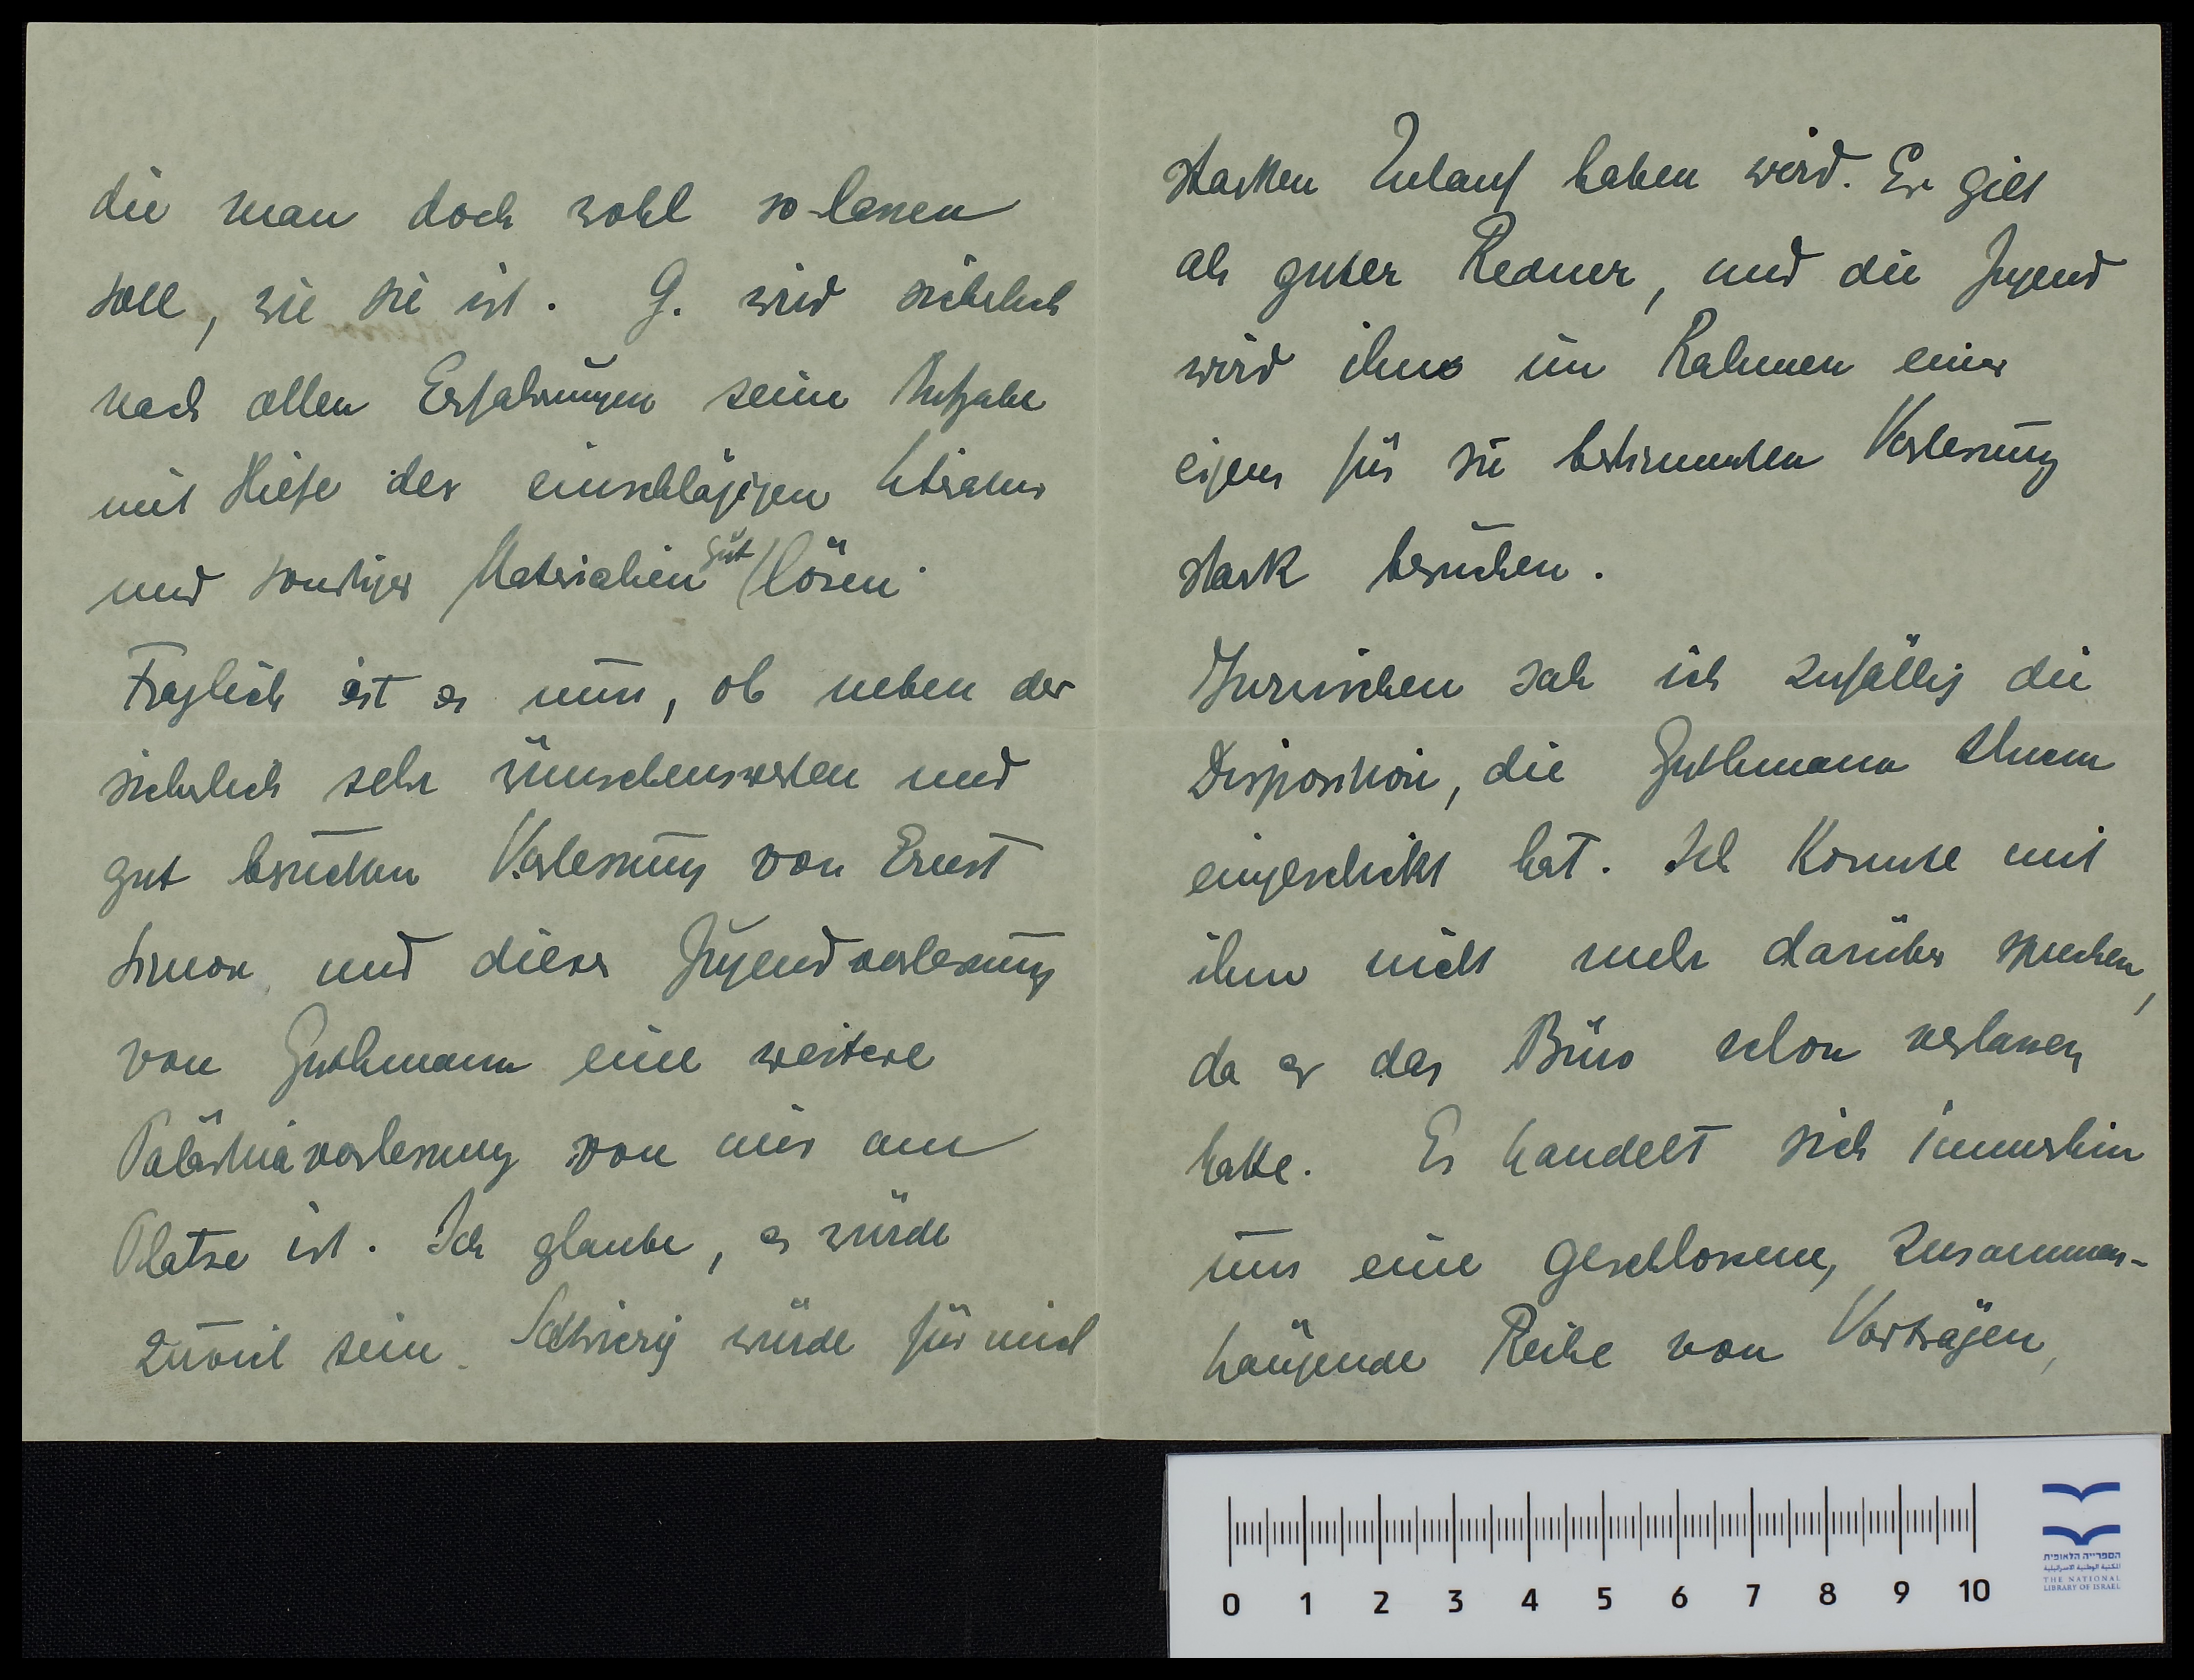 die man doch wohl so lassen
soll, wie sie ist. G. wird sicherlich
nach allen Erfahrungen seine Aufgabe
mit Hilfe der einschlägigen Literatur
und sonstiger Materialien gut lösen.
Fraglich ist es nun, ob neben der
sicherlich sehr wünschenswerten und
gut besuchten Vorlesung von Ernst
Simon und dieser Jugendvorlesung
von Guthmann eine weitere
Palästinavorlesung von mir am
Platze ist. Ich glaube, es würde
zuviel sein. Schwierig würde für mich
starken Zulauf haben wird. Er gilt
als guter Redner, und die Jugend
wird ihn im Rahmen einer
eigens für sie bestimmten Vorlesung
stark besuchen.
Inzwischen sah ich zufällig die
Disposition, die Guthmann Ihnen
eingeschickt hat. Ich konnte mit
ihm nicht mehr darüber sprechen,
da er das Büro schon verlassen
hatte. Es handelt sich immerhin
um eine geschlossene, zusammen-
hängende Reihe von Vorträgen,
0 1 2 3 4 5 6 7 8 9 10
הספרייה הלאומית
THE NATIONAL
LIBRARY OF ISRAEL